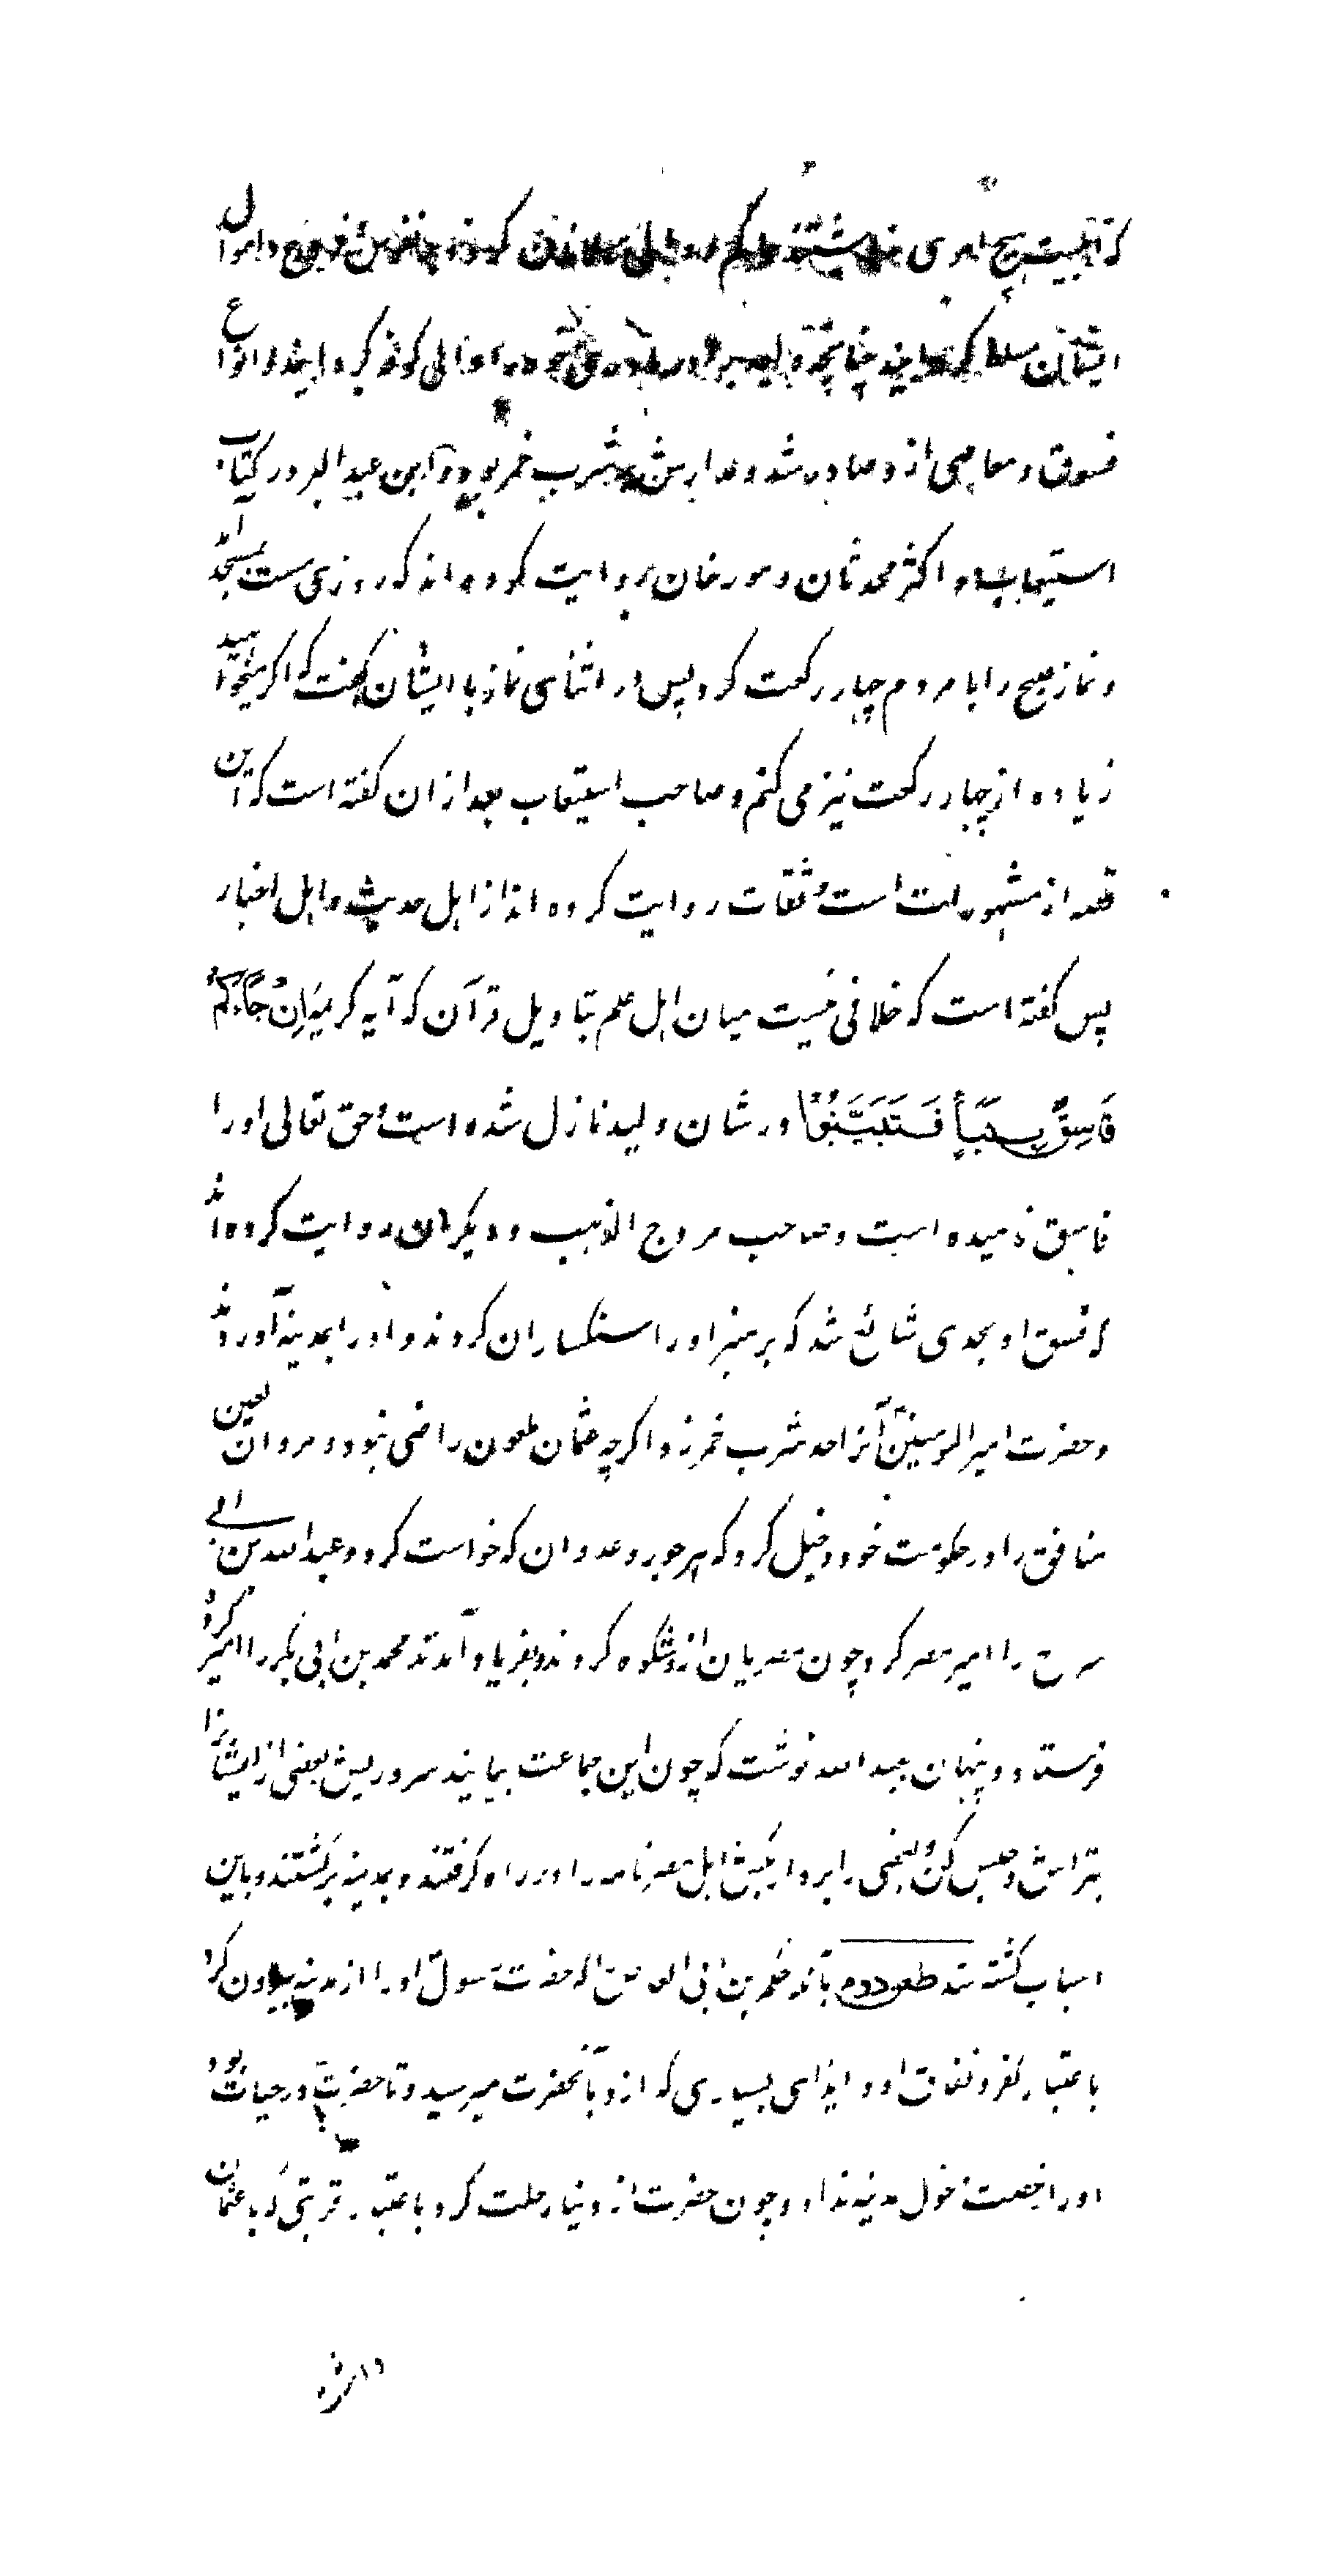 که قابلیت هیچ امری نداشتند حاکم و والی مسلمانان کرد و اموال
ایشان مسلط گردانید چنانچه ولید برادر مادری خود را والی کوفه گردانید و انواع
فسوق و معاصی ازو صادر شد و مدارش بر شرب خمر بود و ابن عبد البر در کتاب
استیعاب و اکثر محدثان و مورخان روایت کرده اند که روزی مست بمسجد آمد
و نماز صبح را با مردم چهار رکعت کرد پس در اثنای نماز با ایشان گفت که اگر میخواهید
زیاده از چهار رکعت نیز می کنم و صاحب استیعاب بعد از ان گفته است که این
قصه از مشهورات است و ثقات روایت کرده اند از اهل حدیث و اهل اخبار
پس گفته است که خلافی نیست میان اهل علم بتاویل قرآن که آیه کریمه اِنْ جَاءَکُمْ
فَاسِقٌ بِنَبَأٍ فَتَبَيَّنُوْا در شان ولید نازل شده است و حق تعالی او را
فاسق نامیده است و صاحب مروج الذهب و دیگران روایت کرده اند
که فسق او بحدی شائع شد که بر منبر او را سنگساران کردند و او را بمدینه آوردند
و حضرت امیر المومنین آنرا حد شرب خمر زد اگرچه عثمان ملعون راضی نبود و مروان لعین
منافق را در حکومت خود دخیل کرد که هر جور و عدوان که خواست کرد و عبد الله بن ابی
سرح را امیر مصر کرد چون مصریان ازو شکوه کردند و بفریاد آمدند محمد بن ابی بکر را امیر کرد
فرستاد و پنهان بعبد الله نوشت که چون این جماعت بیایند سر و ریش بعضی از ایشانرا
بتراش و حبس کن و بعضی را بردار بکش اهل مصر نامه را در راه گرفتند و بمدینه برگشتند و باین
اسباب کشته شد طعن دوم آنکه حکم بن ابی العاص را که حضرت رسول او را از مدینه بیرون کرد
باعتبار کفر و نفاق او و ایذای بسیاری که ازو بآنحضرت میرسید و تا حضرت در حیات بود
او را رخصت دخول مدینه نداد و چون حضرت از دنیا رحلت کرد باعتبار قرابتی که با عثمان